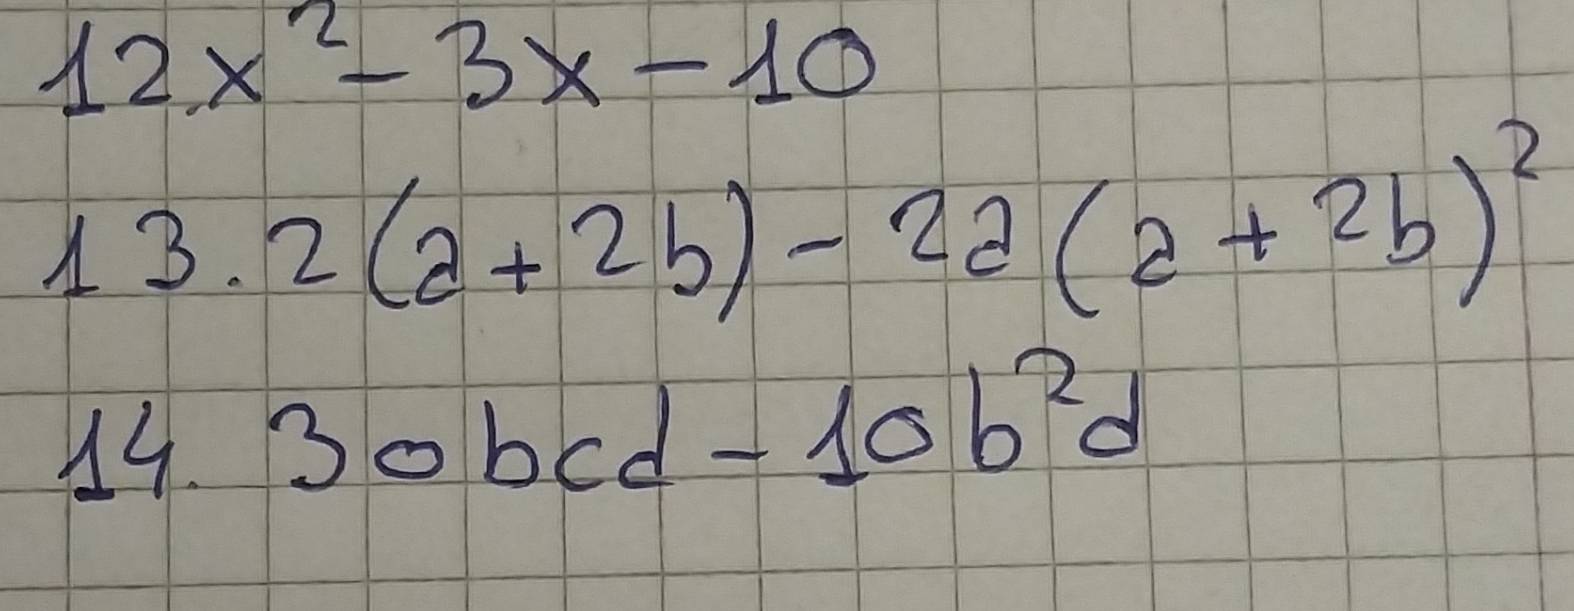 12. x² - 3x - 10
13. 2(a + 2b) - 2a(a + 2b)²
14. 30bcd - 10b²d